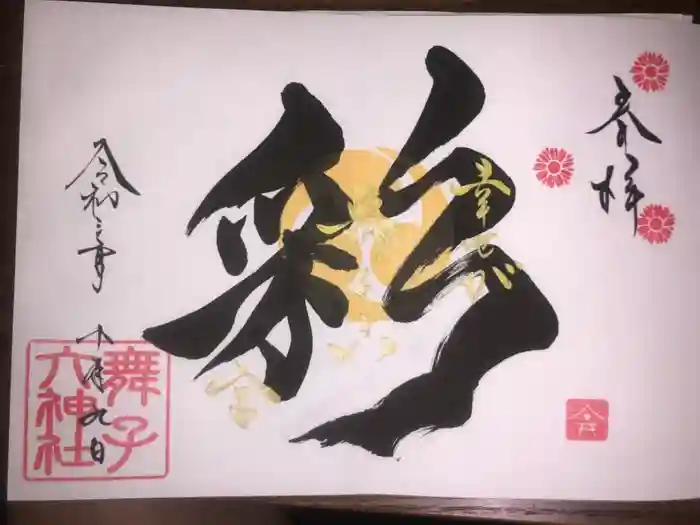 奉拝
彩
幸せが
令和三年
十月九日
舞子
六神社